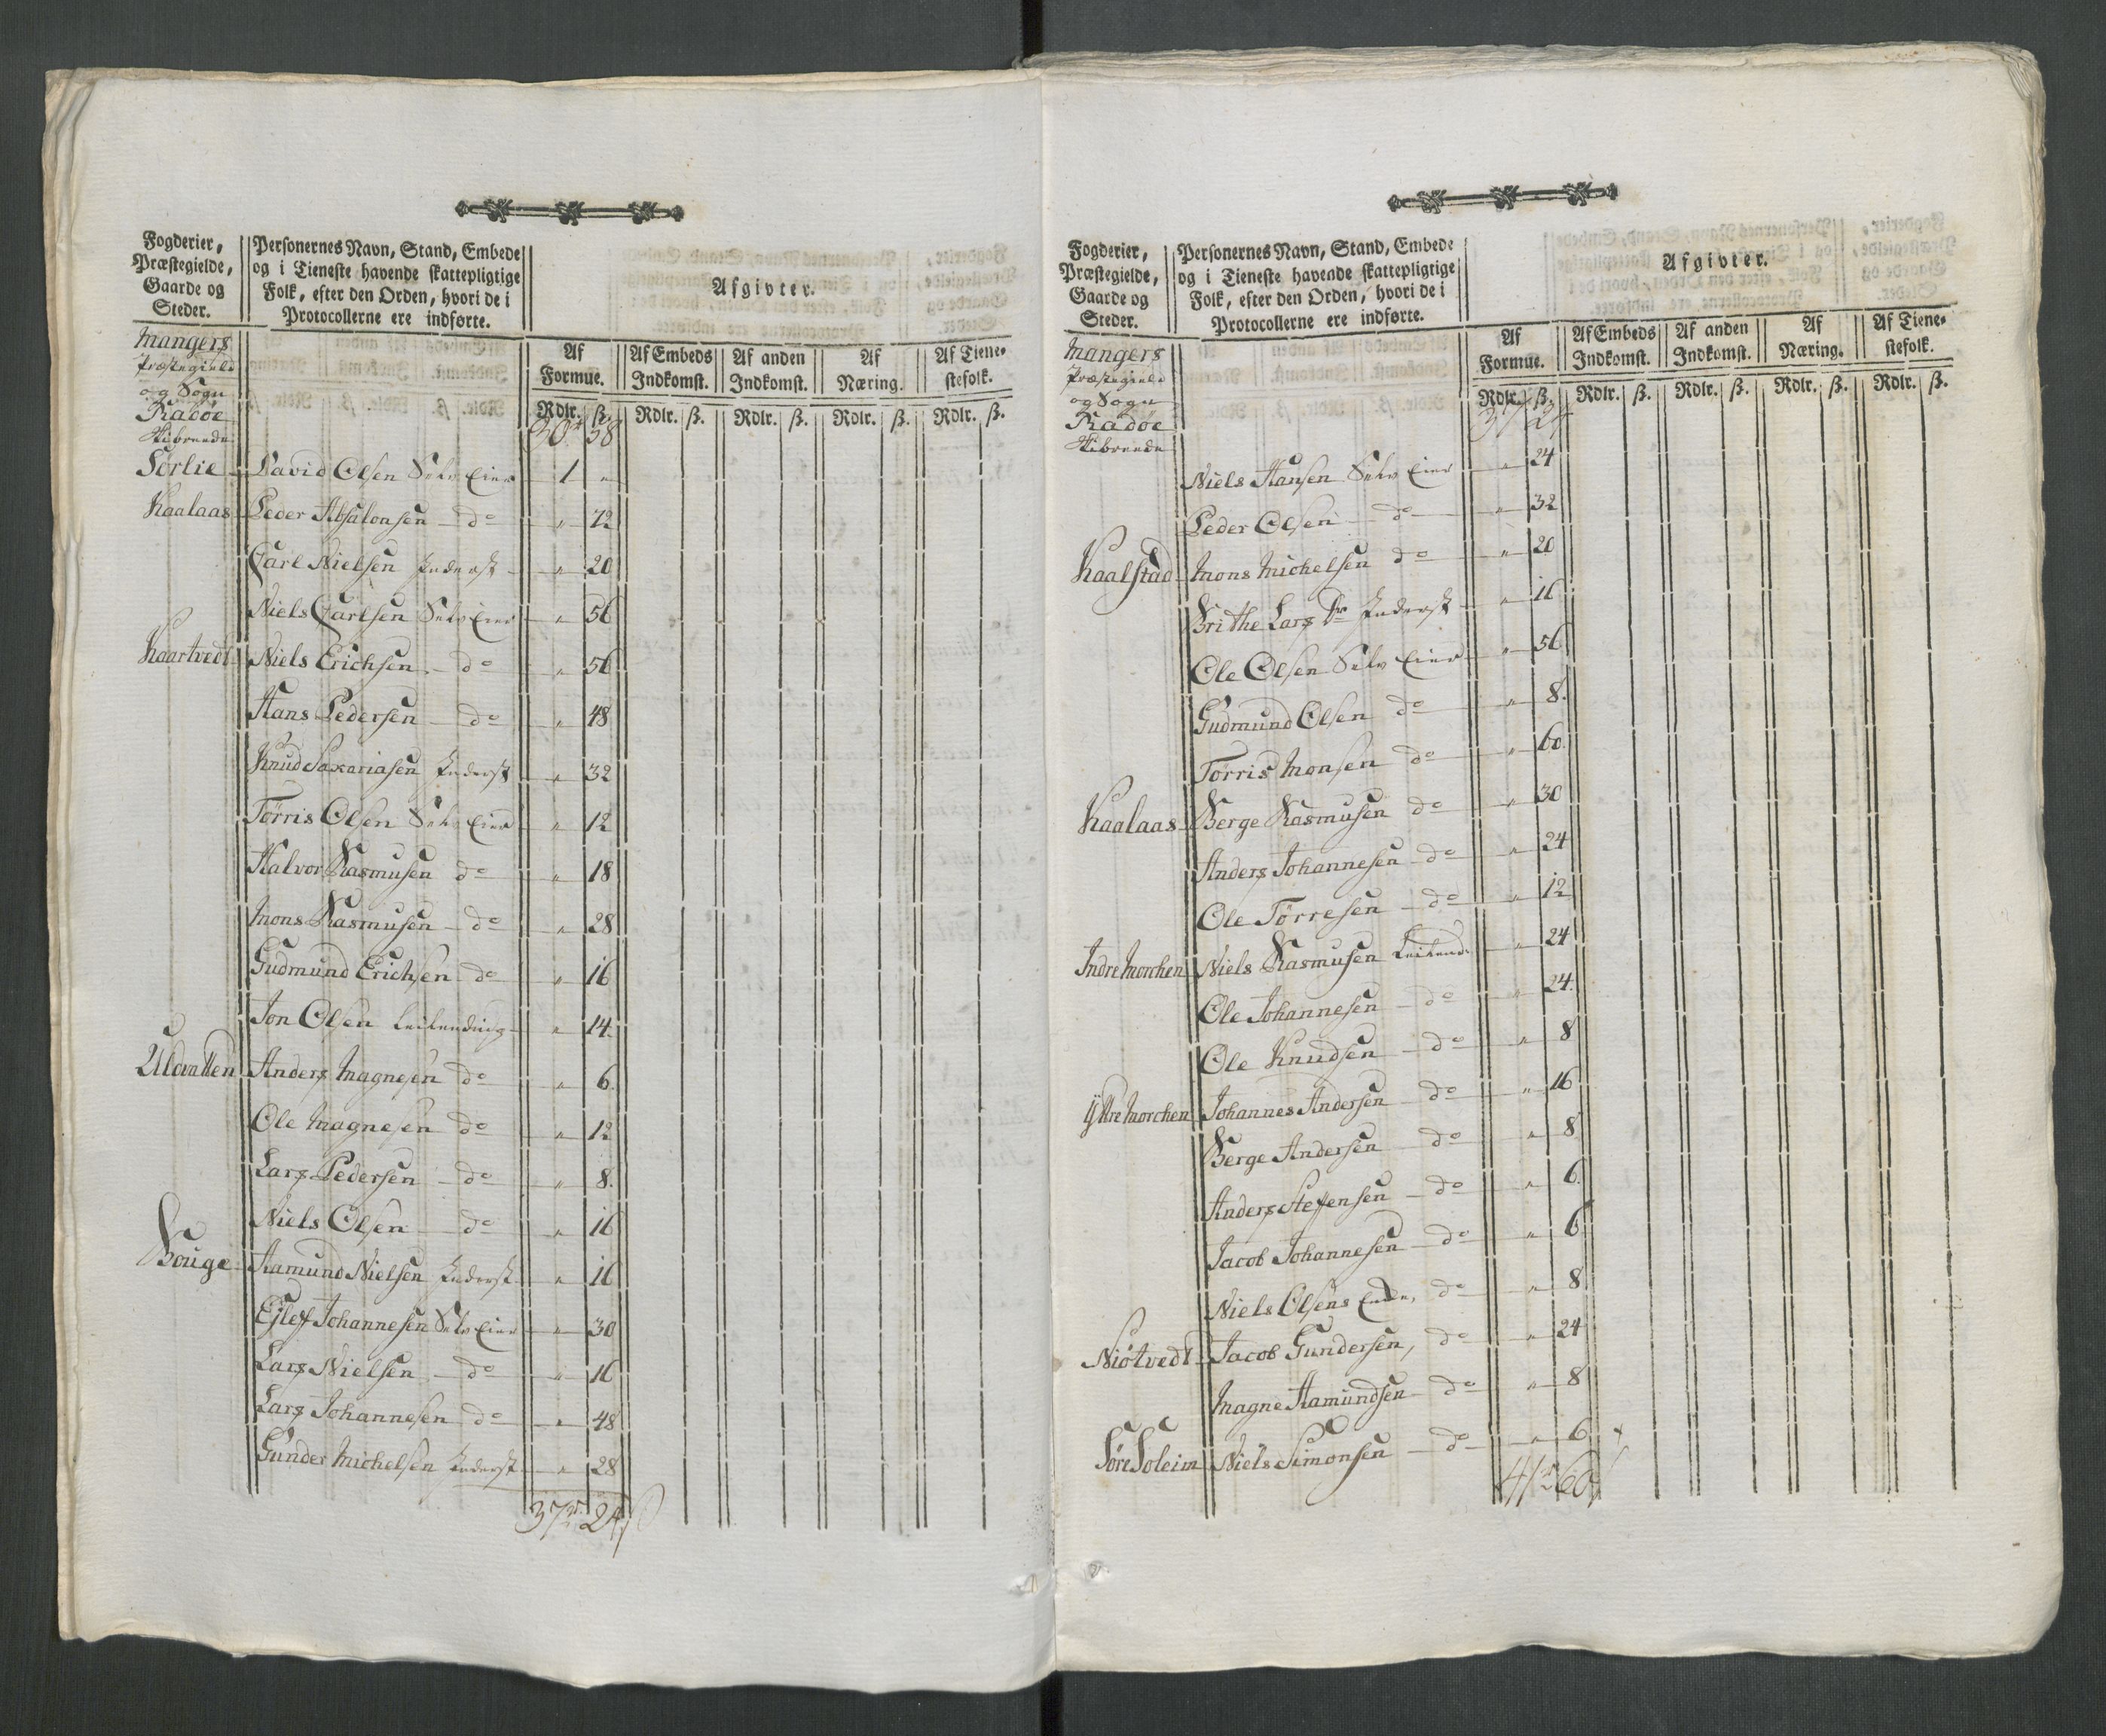 Fogderier, Præstegielde, Gaarde og Steder.
Personernes Navn, Stand, Embede og i Tieneste havende skattepligtige Folk, efter den Orden, hvori de i Protocollerne ere indførte.
Afgivter.
Af Formue. Af Embeds Indkomst. Af anden Indkomst. Af Næring. Af Tienestefolk.
Rdlr. ß. Rdlr. ß. Rdlr. ß. Rdlr. ß. Rdlr. ß.
Mangers
Præstegield
og Sogn
Radøe
Skibreede
30 58
Sørlie David Olsen Selv Eier 1 "
Kaalaas Peder Absalonsen do " 72
Carl Nielsen Inderst " 20
Niels Carlsen Selv Eier " 56
Kaartvedt Niels Erichsen do " 56
Hans Pedersen do " 48
Knud Saxariasen Inderst " 32
Tørris Olsen Selv Eier " 12
Halvor Rasmusen do " 18
Mons Rasmusen do " 28
Gudmund Erichsen do " 16
Jon Olsen Leilending " 14
Anders Magnesen do " 6
Ole Magnesen do " 12
Lars Pedersen do " 8
Niels Olsen do " 16
Bouge Aamund Nielsen Inderst " 16
Ejlef Johannesen Selv Eier " 30
Lars Nielsen do " 16
Lars Johannesen do " 48
Gunder Michelsen Inderst " 28
37 24
Fogderier, Præstegielde, Gaarde og Steder.
Personernes Navn, Stand, Embede og i Tieneste havende skattepligtige Folk, efter den Orden, hvori de i Protocollerne ere indførte.
Afgivter.
Af Formue. Af Embeds Indkomst. Af anden Indkomst. Af Næring. Af Tienestefolk.
Rdlr. ß. Rdlr. ß. Rdlr. ß. Rdlr. ß. Rdlr. ß.
Mangers
Præstegield
og Sogn
Radøe
Skibreede
37 24
Niels Hansen Selv Eier " 24
Peder Olsen do " 32
Kaalstad Mons Michelsen do " 20
Brithe Lars Dr Inderst " 16
Ole Olsen Selv Eier " 56
Gudmund Olsen do " 8
Tørris Monsen do " 60
Kaalaas Berge Rasmusen do " 30
Anders Johannesen do " 24
Ole Tørresen do " 12
Indre Morchen Niels Rasmusen Leilend: " 24
Ole Johannesen do " 24
Ole Knudsen do " 8
Ÿttre Morchen Johannes Andersen do " 16
Berge Andersen do " 8
Anders Steffensen do " 6
Jacob Johannesen do " 6
Niels Olsens Enke, do " 8
Niøtvedt Jacob Gundersen, do " 24
Magne Aamundsen do " 8
Søre Soleim Niels Simonsen do " 6
41 60